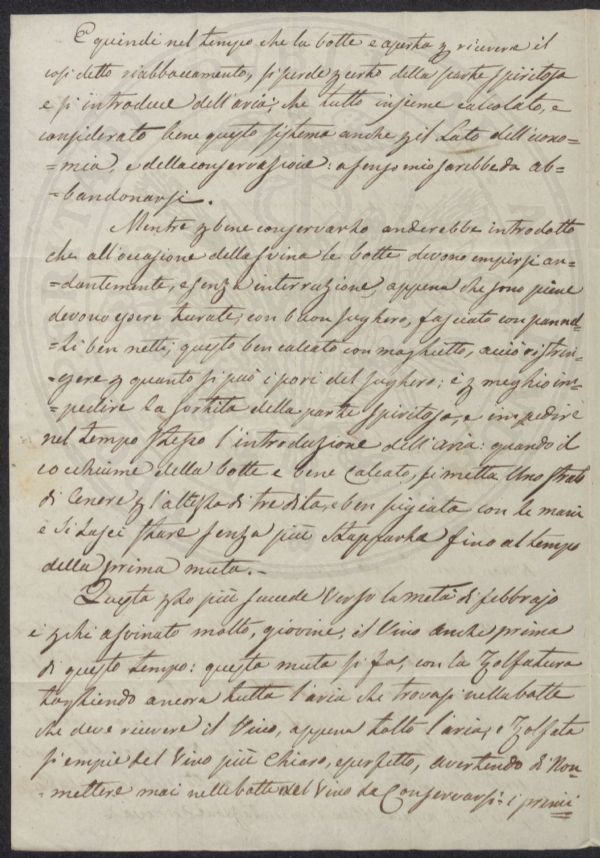 E quindi nel tempo che la botte e aperta p ricevere il
cosi detto riabboccamento, si perde p certo della parte spiritosa
e si introduce dell'aria; che tutto insieme calcolato, e
considerato bene questo sistema anche p il Lato dell'econo=
=mia, e della conservazione: a senso mio sarebbe da ab=
=bandonarsi.
Mentre p bene conservarlo anderebbe introdotto
che all'occasione della svina le botte devono empirsi an=
=dantemente, e senza interruzione, appena che sono piene
devono essere turate, con buon sughero, fasciato con pannel=
=li ben netti; questo ben calcato con maglietto, acciò ristrin=
=gere p quanto si può i pori del sughero; e p meglio im=
=pedire la sortita della parte spiritosa, e impedire
nel tempo stesso l'introduzione dell'aria: quando il
cocchiume della botte e bene Calcato, si metta Uno strato
di Cenere p l'altezza di tre dita, e ben pigiata con le mani
e si Lasci stare senza più stapparla fino al tempo
della prima muta.
Questa p lo più succede verso la metà di febbrajo
e p chi a svinato molto, giovine, il Vino anche prima
di questo tempo: questa muta si fa, con la Zolfatura
togliendo ancora tutta l'aria che trovasi nella botte
che deve ricevere il Vino, appena tolto l'aria, e Zolfata
si empie del Vino più Chiaro, e perfetto, avertendo di Non=
=mettere mai nelle botte del Vino da Conservarsi: i primi